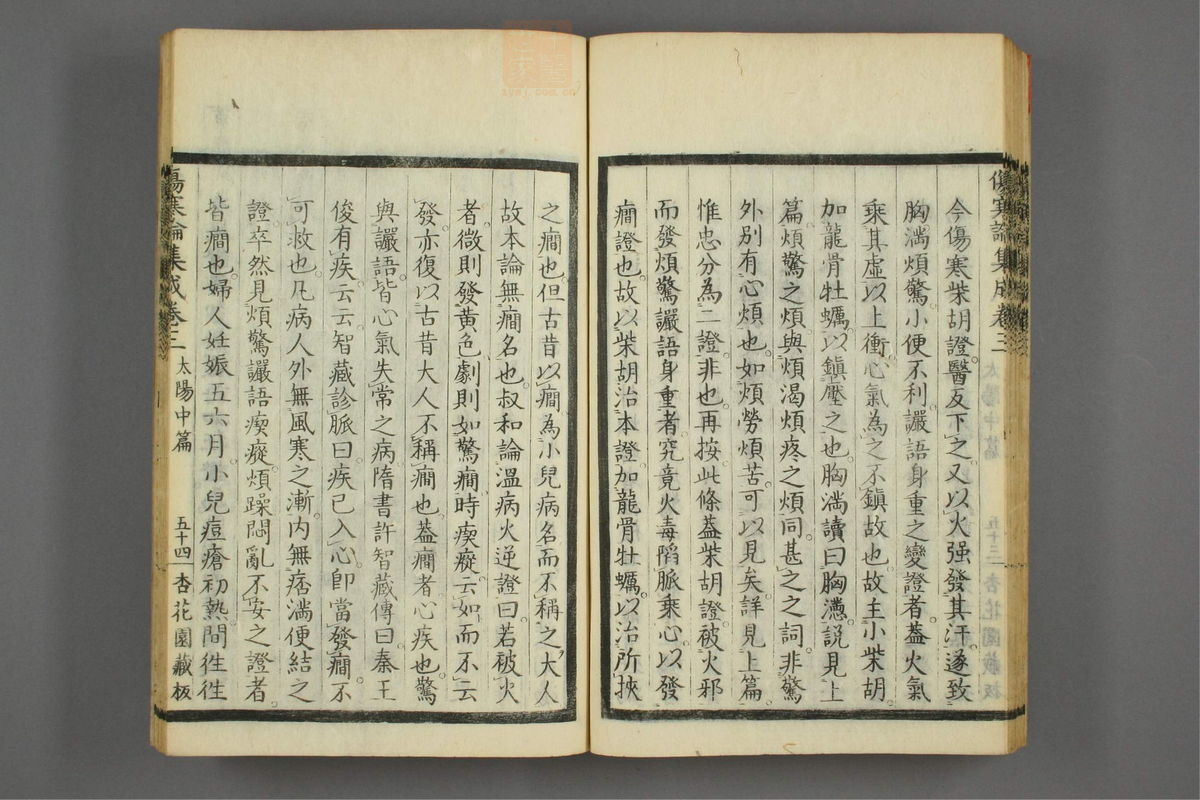 今傷寒柴胡證醫反下之又以火强發其汗遂致
胸滿煩驚小便不利讝語身重之變證者蓋火氣
乘其虛以上衝心氣為之不鎭故也故主小柴胡
加龍骨牡蠣以鎭壓之也胸滿讀曰胸懣説見上
篇煩驚之煩與煩渴煩疼之煩同甚之之詞非驚
外別有心煩也如煩勞煩苦可以見矣詳見上篇
惟忠分為二證非也再按此條蓋柴胡證被火邪
而發煩驚讝語身重者究竟火毒陷脈乘心以發
癇證也故以柴胡治本證加龍骨牡蠣以治所挾
之癇也但古昔以癇為小兒病名而不稱之大人
故本論無癇名也叔和論溫病火逆證曰若被火
者微則發黃色劇則如驚癇時瘈瘲云如而不云
發亦復以古昔大人不稱癇也蓋癇者心疾也驚
與讝語皆心氣失常之病隋書許智藏傳曰秦王
俊有疾云云智藏診脈曰疾已入心卽當發癇不
可救也凡病人外無風寒之漸内無痞滿便結之
證卒然見煩驚讝語瘈瘲煩躁悶亂不安之證者
皆癇也婦人妊娠五六月小兒痘瘡初熱間徃徃
傷寒論集成卷三 太陽中篇 五十四 杏花園藏板